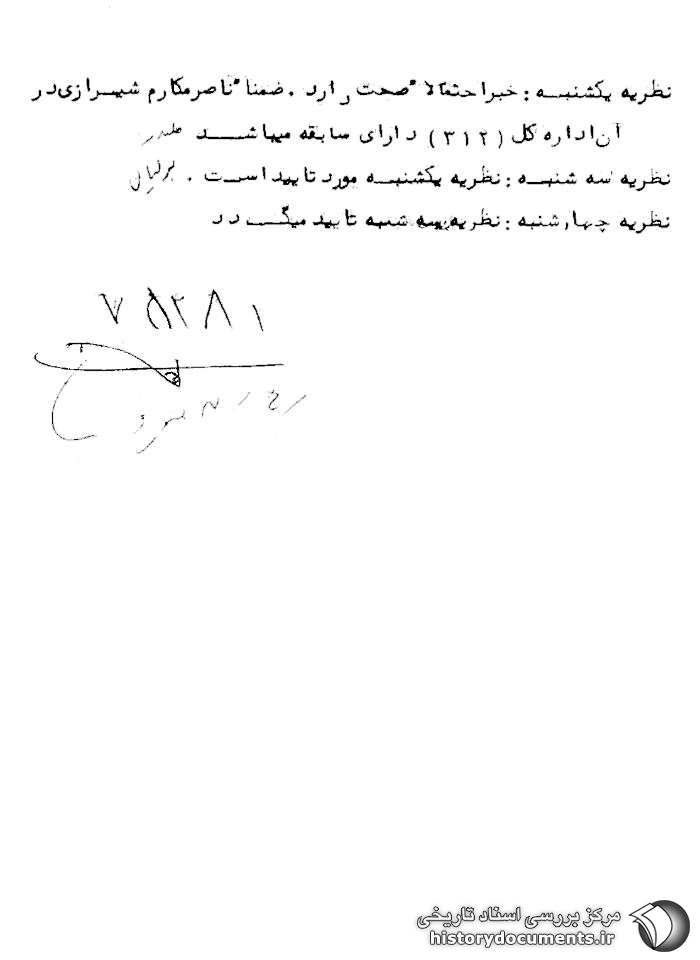 نظریه یکشنبه : خبر احتمالا صحت دارد . ضمنا ناصر مکارم شیرازی در
آن اداره کل (۳۱۲) دارای سابقه میباشد
نظریه سه شنبه : نظریه یکشنبه مورد تایید است .
نظریه چهارشنبه : نظریه سه شنبه تایید میگردد
مرکز بررسی اسناد تاریخی
historydocuments.ir